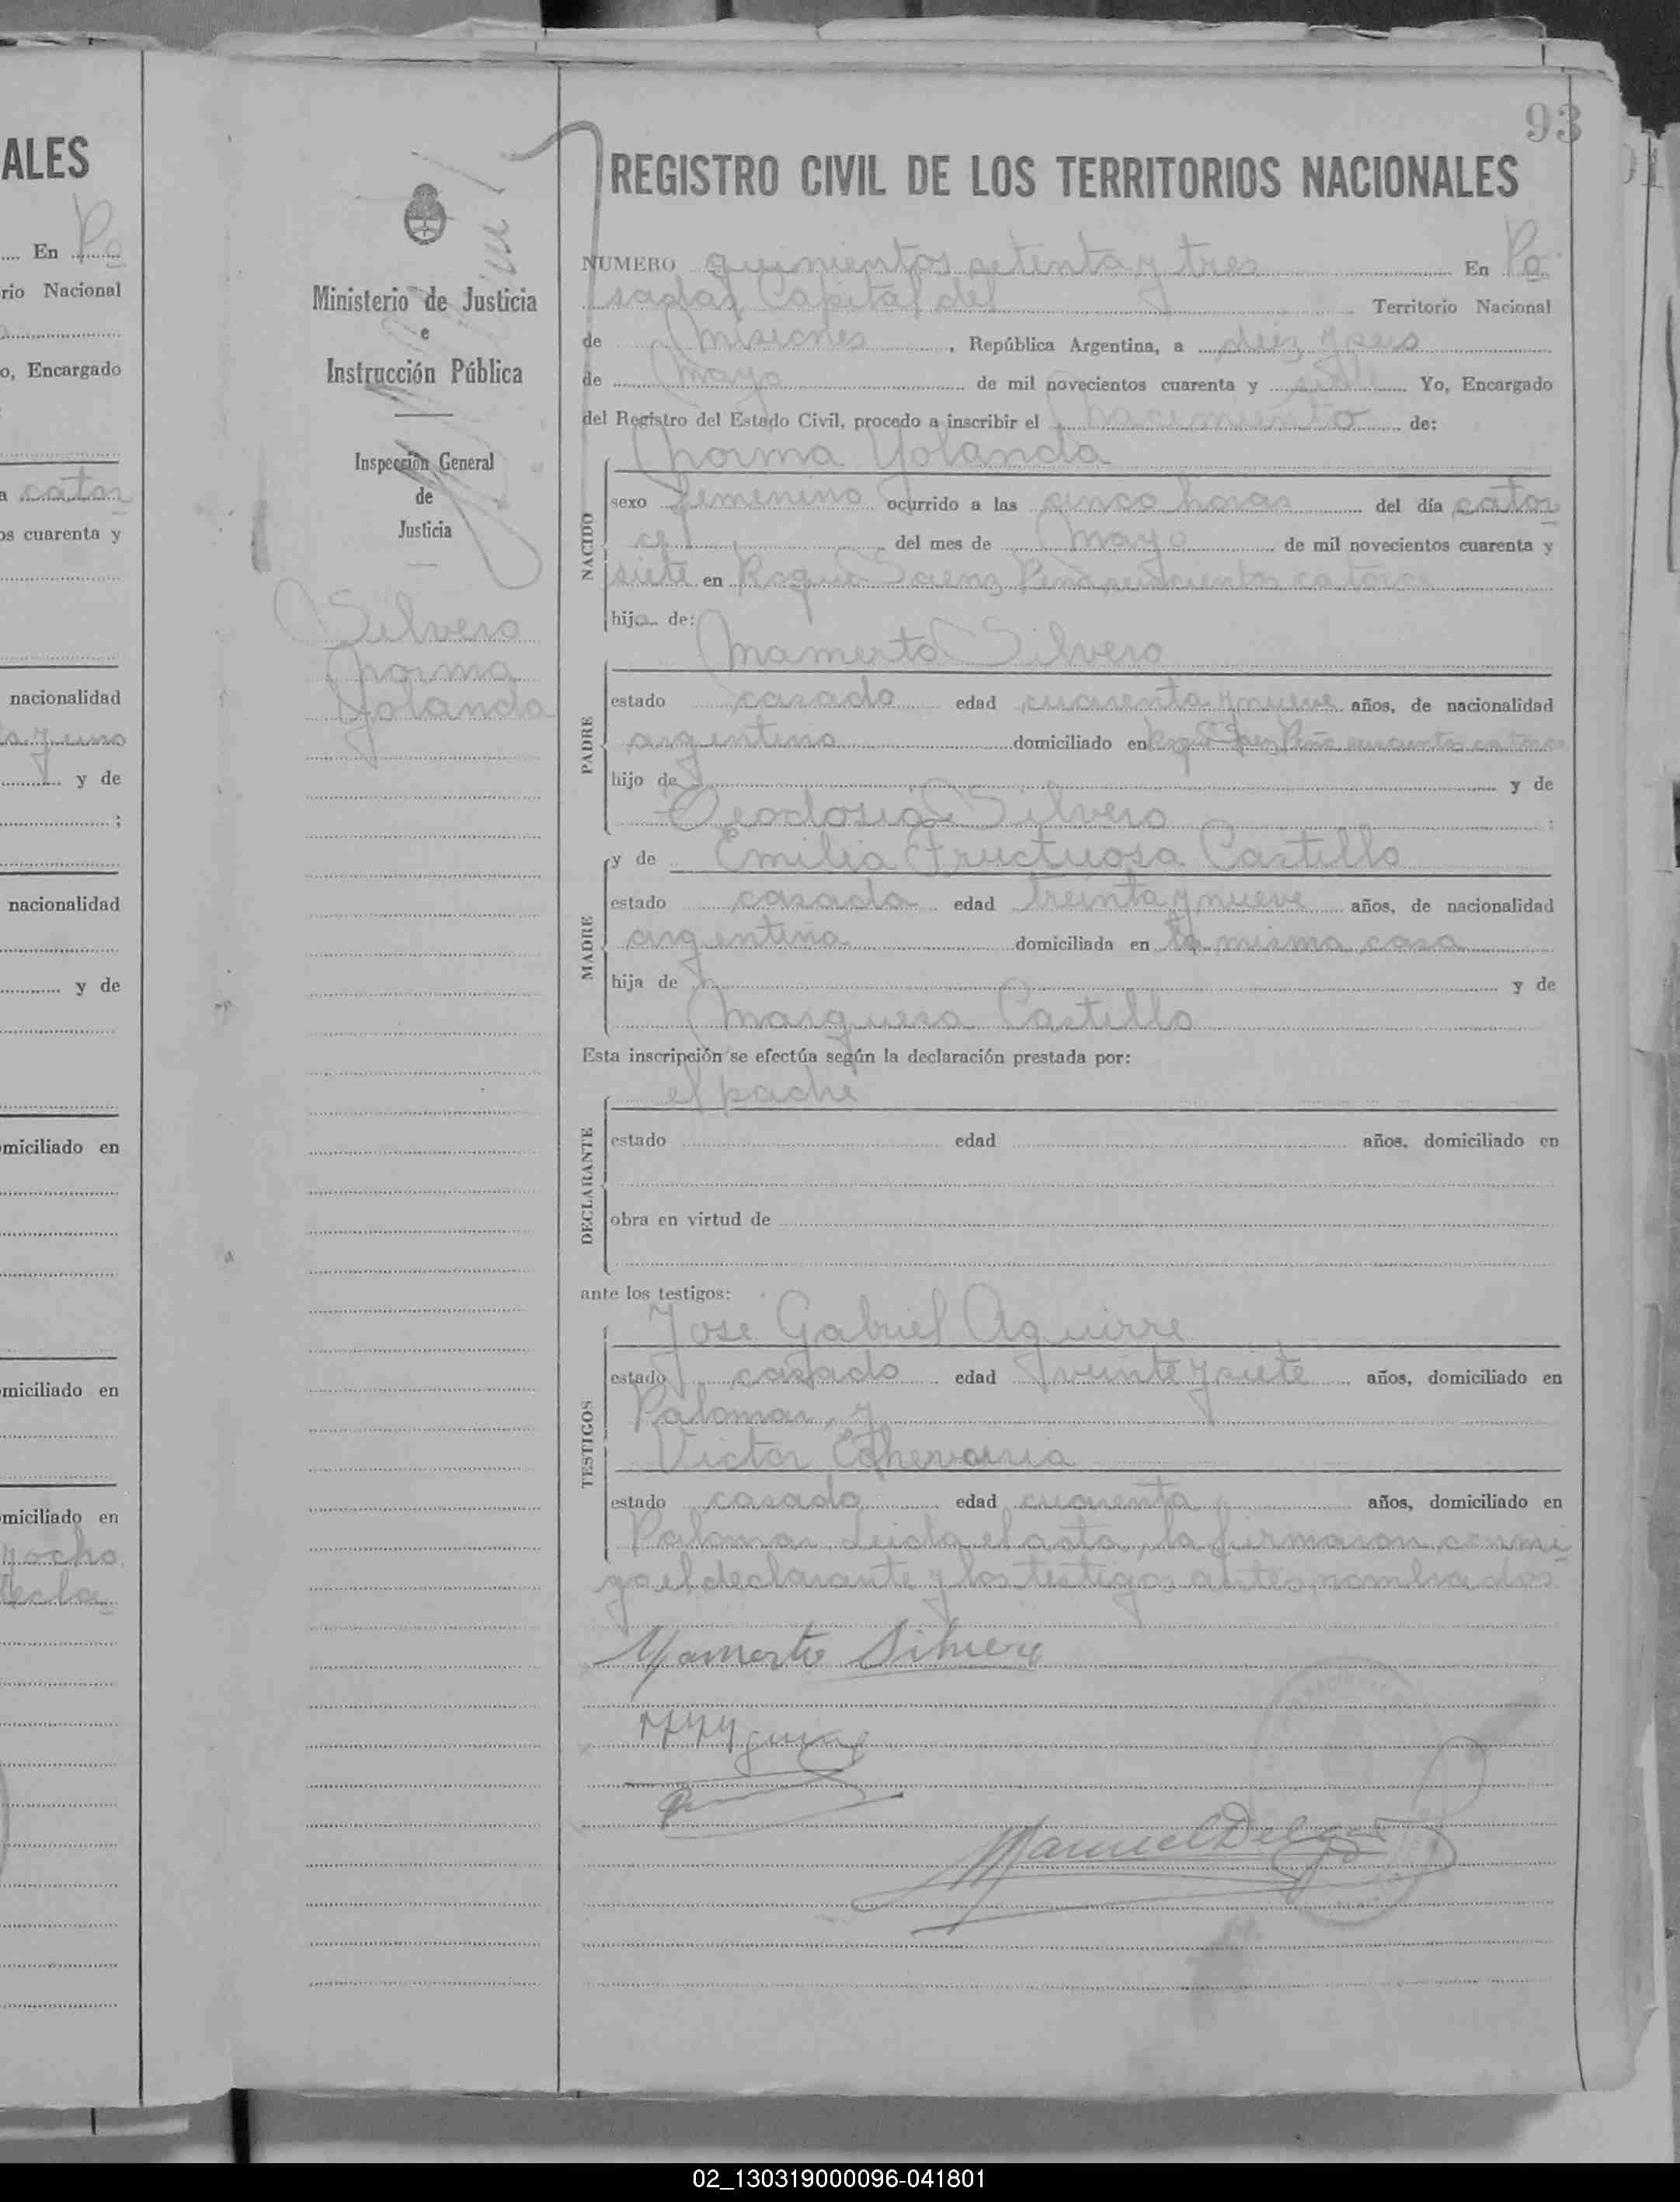 ALES
En Po
rio Nacional
o, Encargado
a cator
os cuarenta y
nacionalidad
ta y uno
y de
;
nacionalidad
y de
miciliado en
miciliado en
miciliado en
y ocho
decla
Ministerio de Justicia
e
Instrucción Pública
Inspección General
de
Justicia
Silvero
Norma
Yolanda
93
REGISTRO CIVIL DE LOS TERRITORIOS NACIONALES
NUMERO quinientos setenta y tres En Po
sadas Capital del Territorio Nacional
de Misiones, República Argentina, a diez y seis
de Mayo de mil novecientos cuarenta y siete Yo, Encargado
del Registro del Estado Civil, procedo a inscribir el Nacimiento de:
Norma Yolanda
NACIDO
sexo femenino ocurrido a las cinco horas del día cator
ce del mes de Mayo de mil novecientos cuarenta y
siete en Roque Saenz Peña catorce
hija de:
Mamerto Silvero
PADRE
estado casado edad cuarenta y nueve años, de nacionalidad
argentino domiciliado en Roque Saenz Peña catorce
hijo de y de
Teodosia Silvero
y de Emilia Fructuosa Castillo
MADRE
estado casada edad treinta y nueve años, de nacionalidad
argentina domiciliada en la misma casa
hija de y de
Marquesa Castillo
Esta inscripción se efectúa según la declaración prestada por:
el padre
DECLARANTE
estado edad años, domiciliado en
obra en virtud de
ante los testigos:
Jose Gabriel Aguirre
TESTIGOS
estado casado edad veinte y siete años, domiciliado en
Palomar, y
Victor Echevarria
estado casado edad cuarenta años, domiciliado en
Palomar. Leida el acta, la firmaron conmi
go el declarante y los testigos antes nombrados
Mamerto Silvero
Manuel Delg
02_130319000096-041801